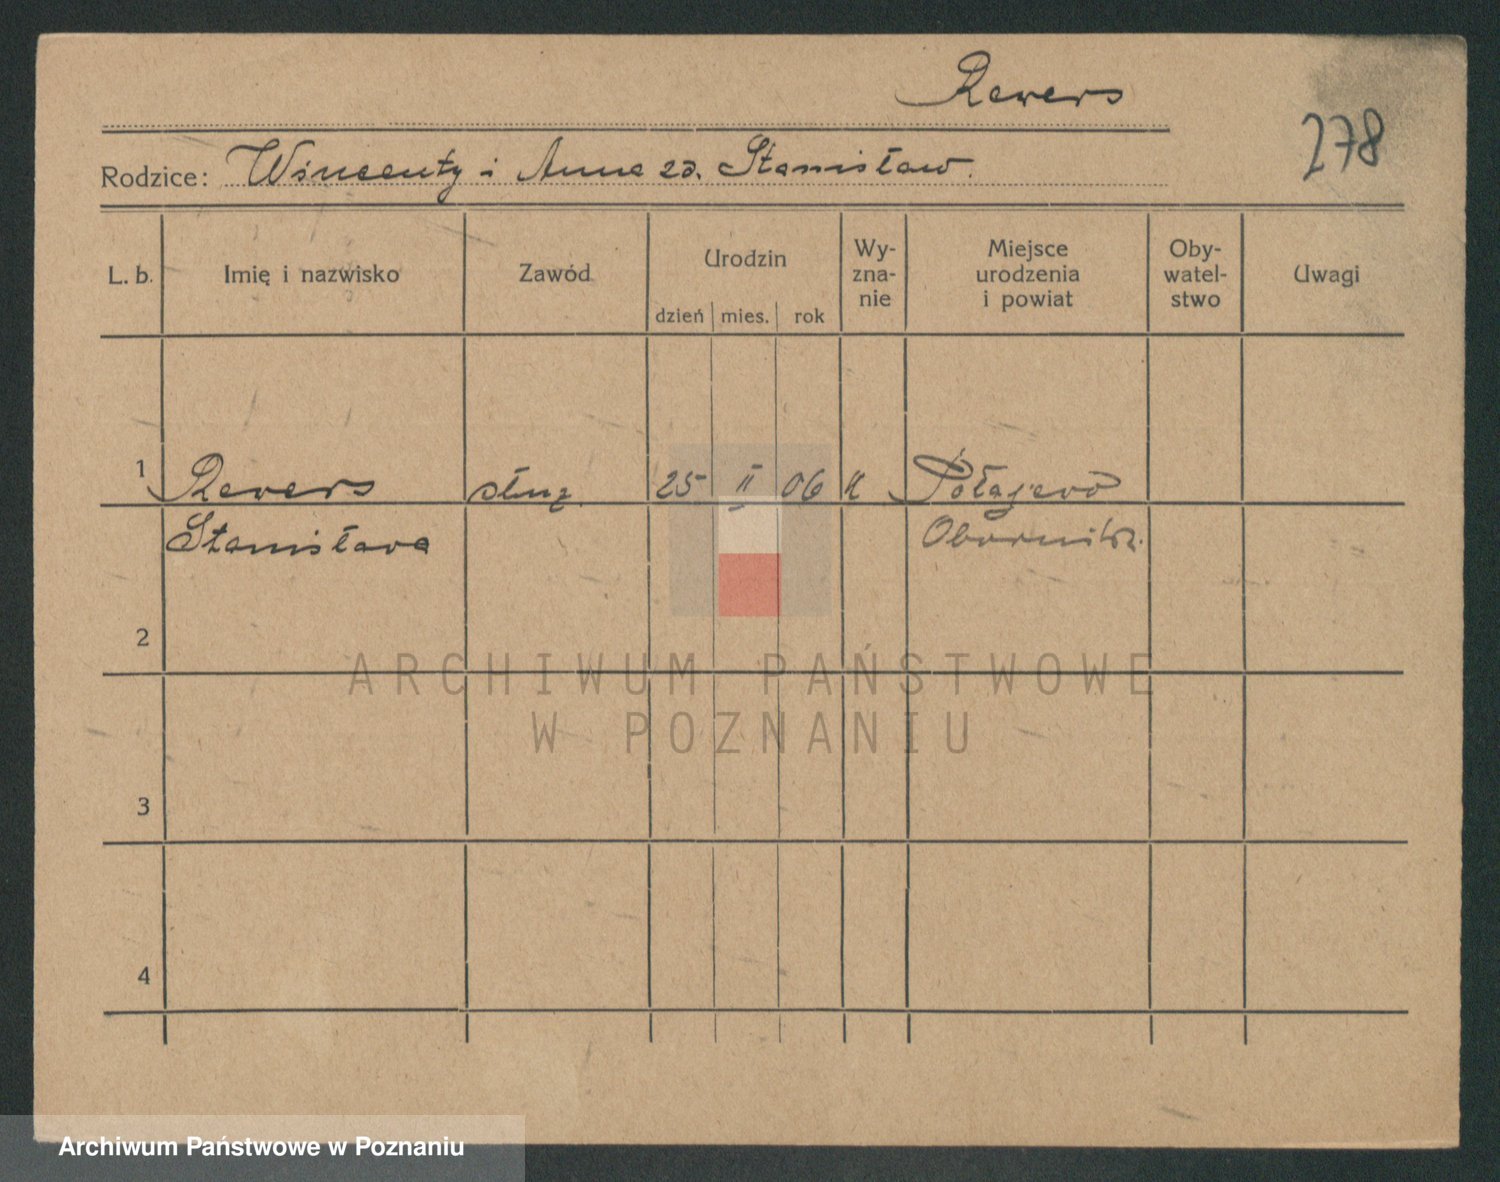 Rewers
278
Rodzice: Wincenty i Anna zd. Stanisław.
L. b. Imię i nazwisko Zawód Urodzin dzień mies. rok Wy-zna-nie Miejsce urodzenia i powiat Oby-watel-stwo Uwagi
1 Rewers służ. 25 II 06 k Połajewo
Stanisława Obornik.
2
3
4
ARCHIWUM PAŃSTWOWE
W POZNANIU
Archiwum Państwowe w Poznaniu